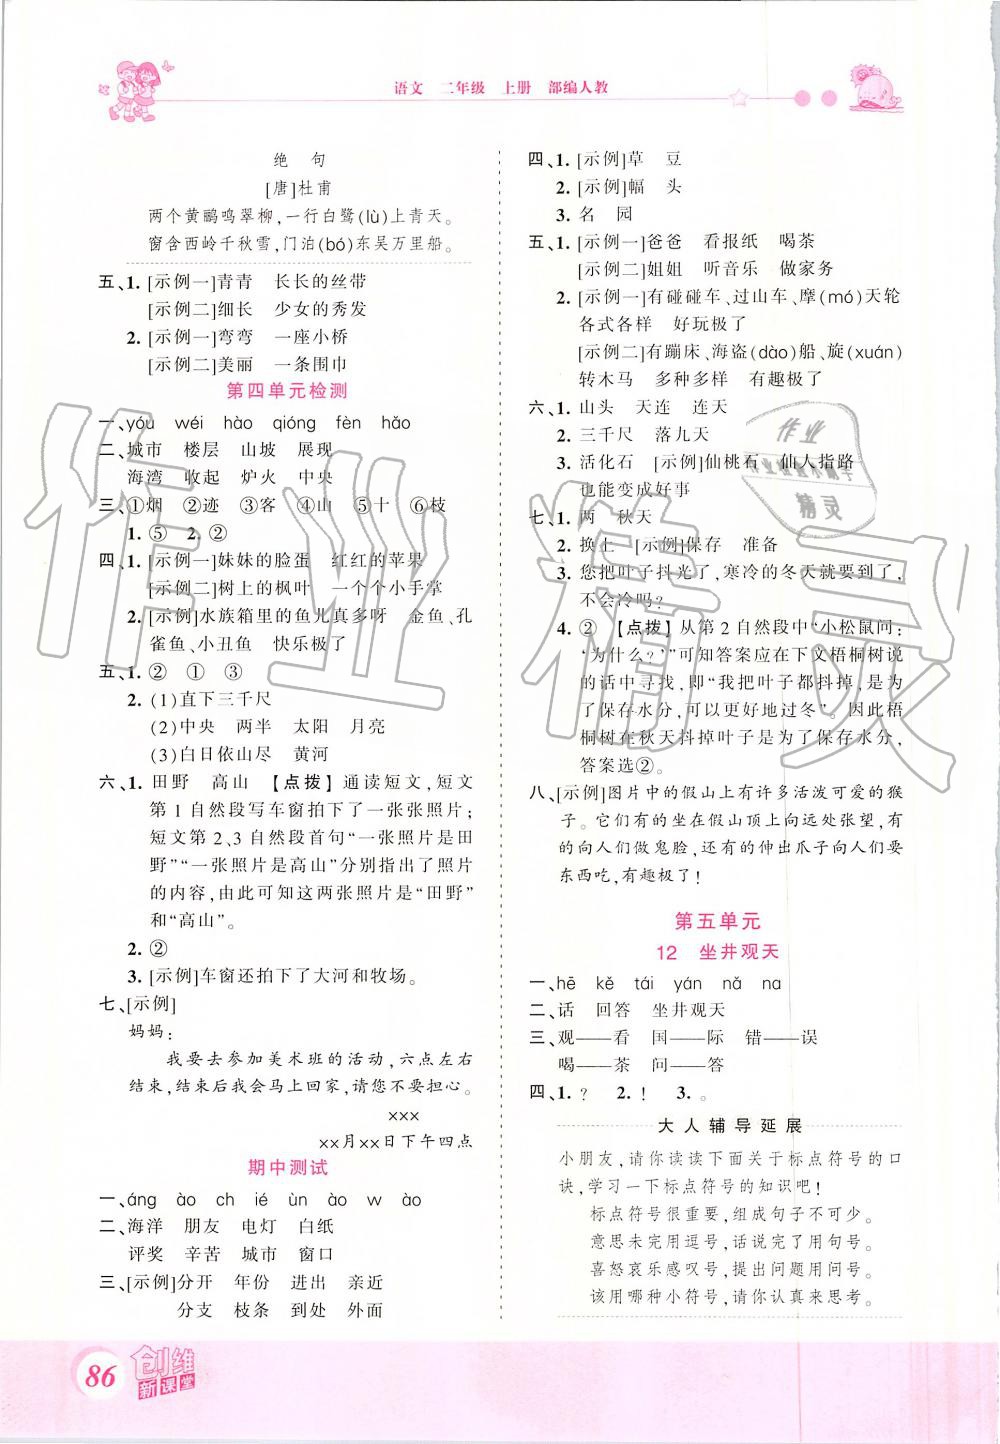 语文 二年级 上册 部编人教
绝 句
[唐]杜甫
两个黄鹂鸣翠柳,一行白鹭(lù)上青天。
窗含西岭千秋雪,门泊(bó)东吴万里船。
五、1. [示例一]青青 长长的丝带
[示例二]细长 少女的秀发
2. [示例一]弯弯 一座小桥
[示例二]美丽 一条围巾
第四单元检测
一、yóu wéi hào qióng fèn hǎo
二、城市 楼层 山坡 展现
海湾 收起 炉火 中央
三、①烟 ②迹 ③客 ④山 ⑤十 ⑥枝
1. ⑤ 2. ②
四、1. [示例一]妹妹的脸蛋 红红的苹果
[示例二]树上的枫叶 一个个小手掌
2. [示例]水族箱里的鱼儿真多呀 金鱼、孔
雀鱼、小丑鱼 快乐极了
五、1. ② ① ③
2. (1)直下三千尺
(2)中央 两半 太阳 月亮
(3)白日依山尽 黄河
六、1. 田野 高山 【点拨】通读短文,短文
第1自然段写车窗拍下了一张张照片;
短文第2、3自然段首句“一张照片是田
野”“一张照片是高山”分别指出了照片
的内容,由此可知这两张照片是“田野”
和“高山”。
2. ②
3. [示例]车窗还拍下了大河和牧场。
七、[示例]
妈妈:
我要去参加美术班的活动,六点左右
结束,结束后我会马上回家,请您不要担心。
×××
××月××日下午四点
期中测试
一、áng ào ch ié ùn ào w ào
二、海洋 朋友 电灯 白纸
评奖 辛苦 城市 窗口
三、[示例]分开 年份 进出 亲近
分支 枝条 到处 外面
四、1. [示例]草 豆
2. [示例]幅 头
3. 名 园
五、1. [示例一]爸爸 看报纸 喝茶
[示例二]姐姐 听音乐 做家务
2. [示例一]有碰碰车、过山车、摩(mó)天轮
各式各样 好玩极了
[示例二]有蹦床、海盗(dào)船、旋(xuán)
转木马 多种多样 有趣极了
六、1. 山头 天连 连天
2. 三千尺 落九天
3. 活化石 [示例]仙桃石 仙人指路
也能变成好事
七、1. 两 秋天
2. 换上 [示例]保存 准备
3. 您把叶子抖光了,寒冷的冬天就要到了,
不会冷吗?
4. ② 【点拨】从第2自然段中“小松鼠问:
‘为什么?’”可知答案应在下文梧桐树说
的话中寻找,即“我把叶子都抖掉,是为
了保存水分,可以更好地过冬”。因此梧
桐树在秋天抖掉叶子是为了保存水分,
答案选②。
八、[示例]图片中的假山上有许多活泼可爱的猴
子。它们有的坐在假山顶上向远处张望,有
的向人们做鬼脸,还有的伸出爪子向人们要
东西吃,有趣极了!
第五单元
12 坐井观天
一、hē kě tái yán nǎ na
二、话 回答 坐井观天
三、观——看 国——际 错——误
喝——茶 问——答
四、1. ? 2. ! 3. 。
大人辅导延展
小朋友,请你读读下面关于标点符号的口
诀,学习一下标点符号的知识吧!
标点符号很重要,组成句子不可少。
意思未完用逗号,话说完了用句号。
喜怒哀乐感叹号,提出问题用问号。
该用哪种小符号,请你认真来思考。
86
创维
新课堂
作业精灵
作业
精灵